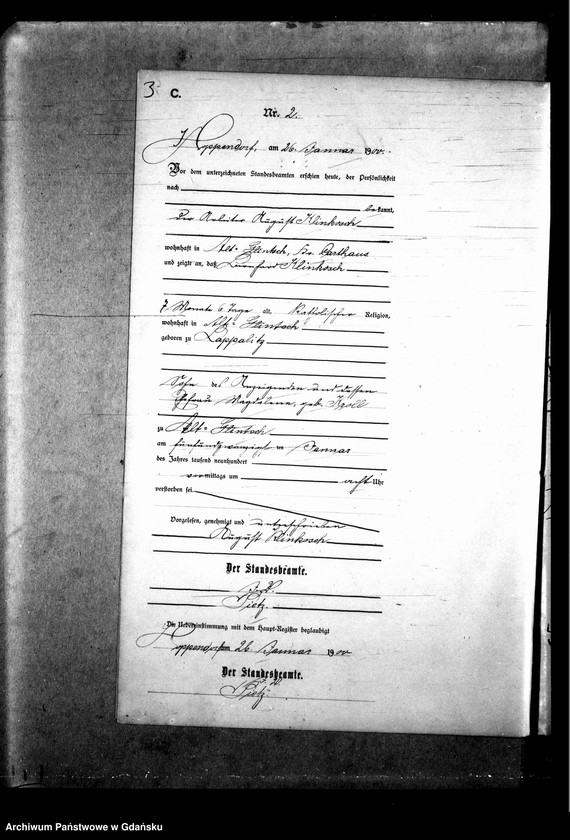 3 C.
Nr. 2.
Hoppendorf, am 26. Januar 1900.
Vor dem unterzeichneten Standesbeamten erschien heute, der Persönlichkeit
nach
bekannt,
der Arbeiter August Klinkosch
wohnhaft in Alt-Glintsch, Kr. Carthaus
und zeigte an, daß Bernhard Klinkosch
7 Monate 6 Tage alt, katholischer Religion,
wohnhaft in Alt-Glintsch
geboren zu Lappalitz
Sohn des Anzeigenden und dessen
Ehefrau Magdalena, geb. Kroll
zu Alt-Glintsch
am fünfundzwanzigsten Januar
des Jahres tausend neunhundert
vormittags um acht Uhr
verstorben sei.
Vorgelesen, genehmigt und unterschrieben
August Klinkosch
Der Standesbeamte.
Die Uebereinstimmung mit dem Haupt-Register beglaubigt
Hoppendorf am 26. Januar 1900
Der Standesbeamte.
Archiwum Państwowe w Gdańsku